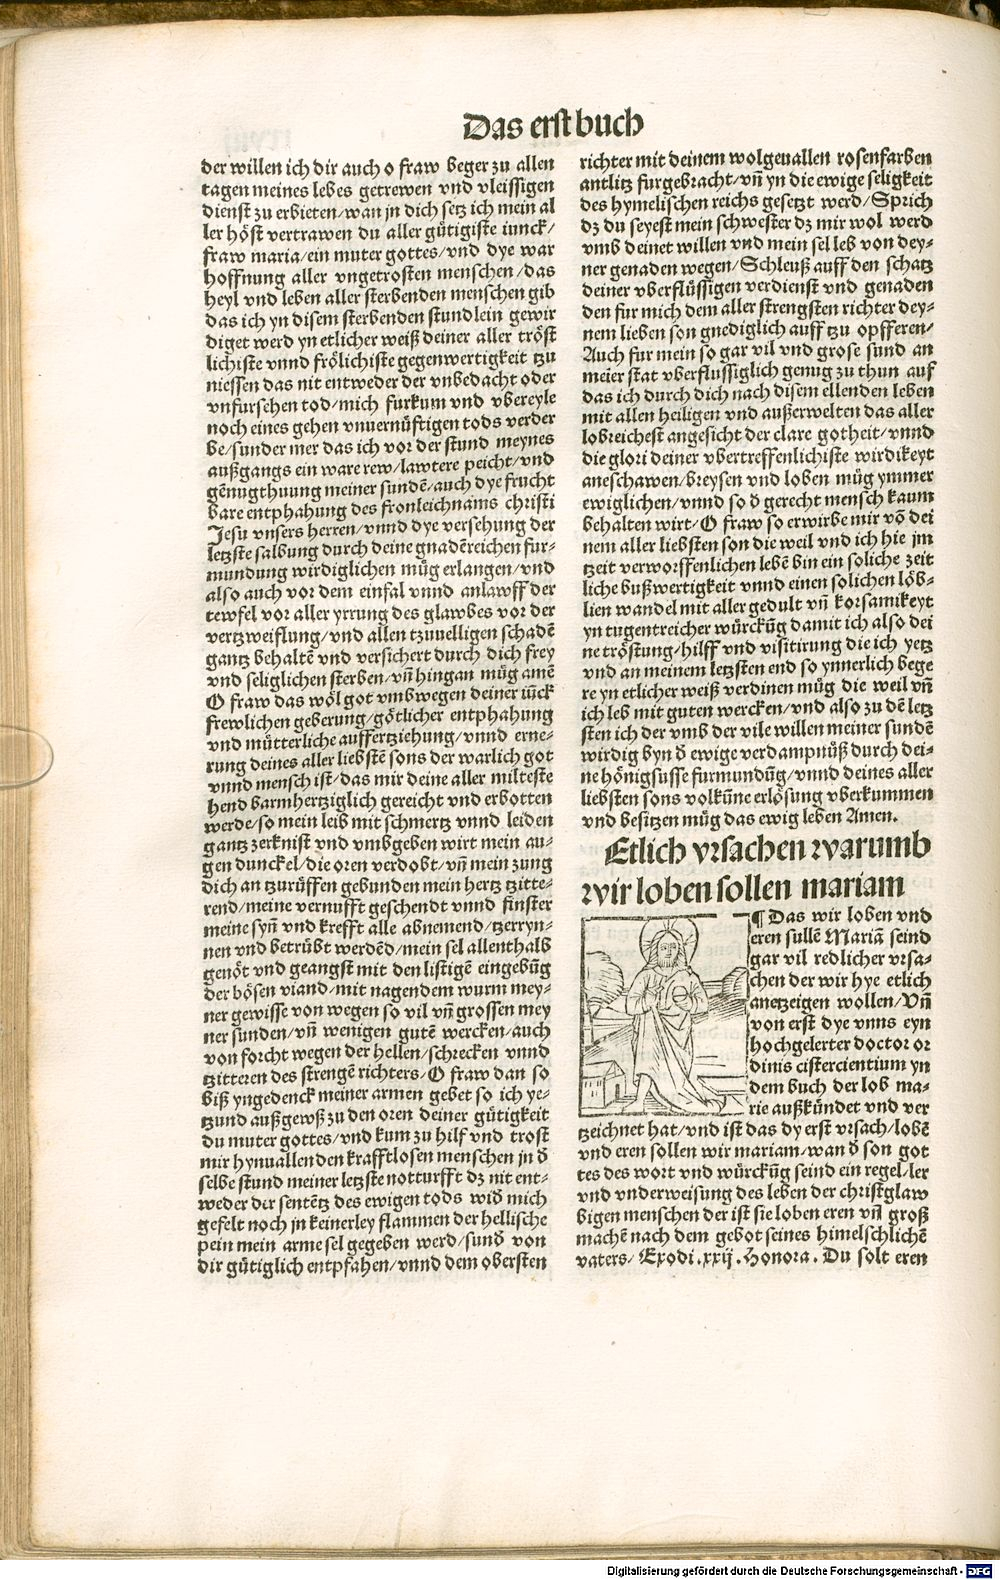 Das erst buch
der willen ich dir auch o fraw beger zu allen
tagen meines lebes getrewen vnd vleissigen
dienst zu erbieten/wan jn dich setz ich mein al
ler höst vertrawen du aller gütigiste iunck/
fraw maria/ein muter gottes/vnd dye war
hoffnung aller vngetrosten menschen/das
heyl vnd leben aller sterbenden menschen gib
das ich yn disem sterbenden stundlein gewir
diget werd yn etlicher weiß deiner aller tröst
lichiste vnnd frölichiste gegenwertigkeit tzu
niessen das nit entweder der vnbedacht oder
vnfursehen tod/mich furkum vnd vbereyle
noch eines gehen vnuernüftigen tods verder
be/sunder mer das ich vor der stund meynes
außgangs ein ware rew/lawtere peicht/vnd
gēnugthuung meiner sundē/auch dye frucht
bare entphahung des fronleichnāms christi
Jesu vnsers herren/vnnd dye versehung der
letzste salbung durch deine gnadēreichen fur-
mundung wirdiglichen müg erlangen/vnd
also auch vor dem einfal vnnd anlawff der
tewfel vor aller yrrung des glawbes vor der
vertzweiflung/vnd allen tzuuelligen schadē
gantz behaltē vnd versichert durch dich frey
vnd seliglichen sterben/vn̄ hingan müg amē
O fraw das wöl got vmbwegen deiner iūck
frewlichen geberung/götlicher entphahung
vnd mütterliche auffertziehung/vnnd erne-
rung deines aller liebstē sons der warlich got
vnnd mensch ist/das mir deine aller milteste
hend barmhertziglich gereicht vnd erbotten
werde/so mein leib mit schmertz vnnd leiden
gantz zerknist vnd vmbgeben wirt mein au-
gen dunckel/die oren verdobt/vn̄ mein zung
dich an tzurüffen gebunden mein hertz tzitte-
rend/meine vernufft geschendt vnnd finster
meine syn̄ vnd krefft alle abnemend/tzerryn-
nen vnd betrübt werdēd/mein sel allenthalb
genöt vnd geangst mit den listigē eingebūg
der bösen viand/mit nagendem wurm mey-
ner gewisse von wegen so vil vn̄ grossen mey
ner sunden/vn̄ wenigen gutē wercken/auch
von forcht wegen der hellen/schrecken vnnd
tzitteren des strengē richters/O fraw dan so
biß yngedenck meiner armen gebet so ich ye-
tzund außgewß zu den oren deiner gütigkeit
du muter gottes/vnd kum zu hilf vnd trost
mir hynuallenden krafftlosen menschen jn d̄
selbe stund meiner letzste notturfft dz nit ent-
weder dir sentētz des ewigen tods wid̄ mich
gefelt noch jn keinerley flammen der hellische
pein mein arme sel gegeben werd/sund̄ von
dir gütiglich entpfahen/vnnd dem obersten
richter mit deinem wolgeuallen rosenfarben
antlitz furgebracht/vn̄ yn die ewige seligkeit
des hymelischen reichs gesetzt werd/Sprich
dz du seyest mein schwester dz mir wol werd
vmb deinet willen vnd mein sel leb von dey-
ner genaden wegen/Schleuß auff den schatz
deiner vberflüssigen verdienst vnd genaden
den fur mich dem aller strengsten richter dey-
nem lieben son gnediglich auff tzu opfferen/
Auch fur mein so gar vil vnd grose sund an
meier stat vberflussiglich genug zu thun auf
das ich durch dich nach disem ellenden leben
mit allen heiligen vnd außerwelten das aller
lobreichest angesicht der clare gotheit/vnnd
die glori deiner vbertreffenlichiste wirdikeyt
aneschawen/breysen vnd loben müg ymmer
ewiglichen/vnnd so d̄ gerecht mensch kaum
behalten wirt/O fraw so erwirbe mir vō dei
nem aller liebsten son die weil vnd ich hie jm
tzeit verworffenlichen lebē bin ein soliche zeit
liche bußwertigkeit vnnd einen solichen löb-
lien wandel mit aller gedult vn̄ korsamikeyt
yn tugentreicher würckūg damit ich also dei
ne tröstung/hilff vnd visitirung die ich yetz
vnd an meinem letzsten end so ynnerlich bege
re yn etlicher weiß verdinen müg die weil vn̄
ich leb mit guten wercken/vnd also zu dē letz
sten ich der vmb der vile willen meiner sundē
wirdig byn d̄ ewige verdampnüß durch dei-
ne hönigsusse furmundūg/vnnd deines aller
liebsten sons volkūne erlösung vberkummen
vnd besitzen müg das ewig leben Amen.
Etlich vrsachen warumb
wir loben sollen mariam
¶ Das wir loben vnd
eren sullē Mariā seind
gar vil redlicher vrsa-
chen der wir hye etlich
anetzeigen wollen/Vn̄
von erst dye vnns eyn
hochgelerter doctor or
dinis cistercientium yn
dem buch der lob ma-
rie außkündet vnd ver
tzeichnet hat/vnd ist das dy erst vrsach/lobē
vnd eren sollen wir mariam/wan d̄ son got
tes des wort vnd würckūg seind ein regel/ler
vnd vnderweisung des leben der christglaw
bigen menschen der ist sie loben eren vn̄ groß
machē nach dem gebot seines himelschlichē
vaters/ Exodi.xxij.Honora. Du solt eren
Digitalisierung gefördert durch die Deutsche Forschungsgemeinschaft - DFG